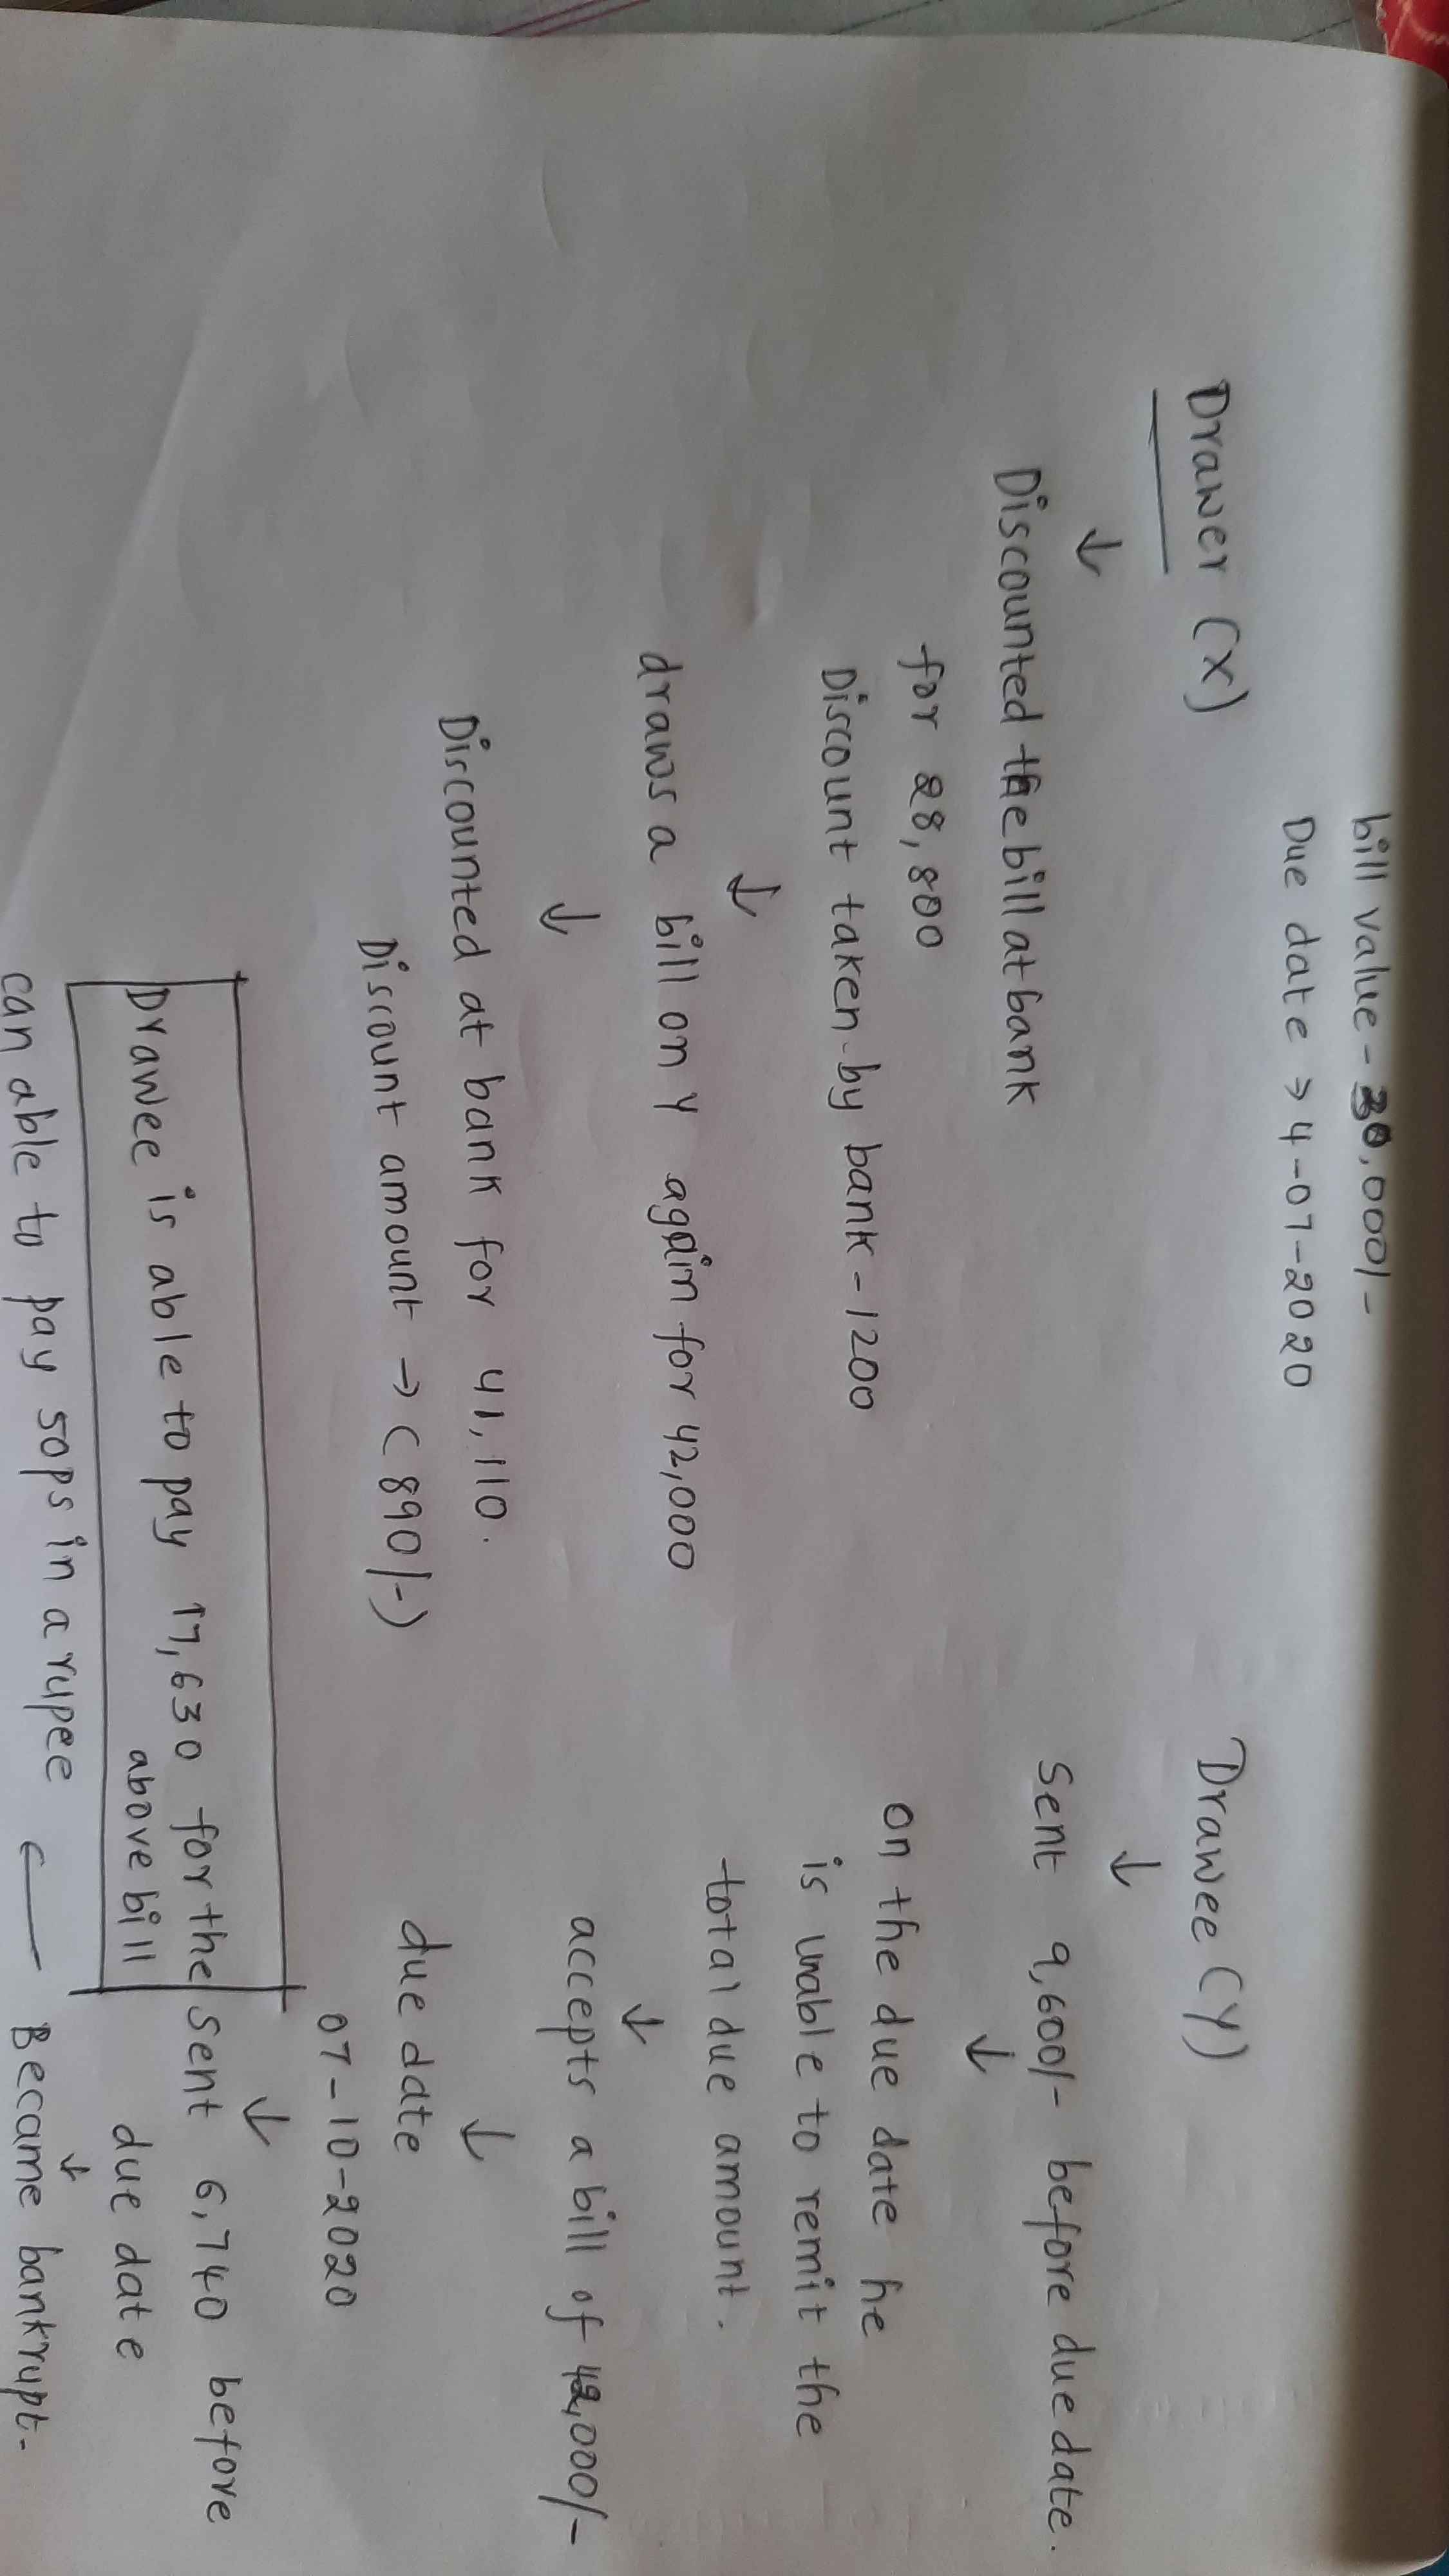 bill value - 30,000/-
Due date → 4-07-2020
Drawer (X)
↓
Discounted the bill at bank
for 28,800
Discount taken by bank - 1200
↓
draws a bill on Y again for 42,000
↓
Discounted at bank for 41,110.
Discount amount → (890/-)
Drawee (Y)
↓
Sent 9,600/- before due date.
↓
on the due date he
is unable to remit the
total due amount.
↓
accepts a bill of 42,000/-
↓
due date
07-10-2020
↓
sent 6,740 before
due date
↓
Became bankrupt.
Drawee is able to pay 17,630 for the
above bill
can able to pay 50ps in a rupee ←